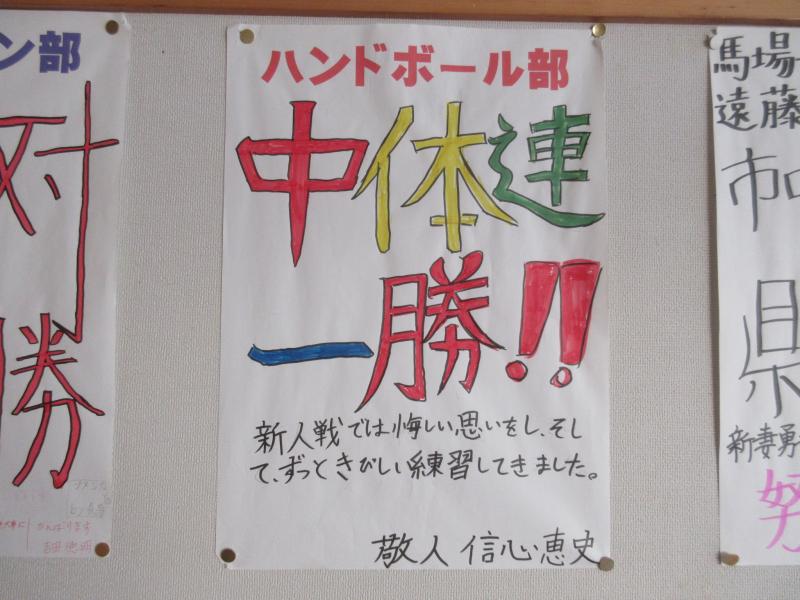 ン部
対
勝
がんばります
ハンドボール部
中体連
一勝!!
新人戦では悔しい思いをし、そし
て、ずっときびしい練習してきました。
敬人 信心 恵史
馬場
遠藤
県
新妻勇
努